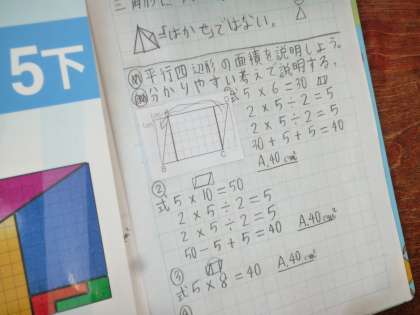 5下
三角形に
「はかせ」ではない。
問 平行四辺形の面積を説明しよう。
分かりやすい考えで説明する。
式 5×6=30
2×5÷2=5
2×5÷2=5
30+5+5=40
A.40cm²
②
式 5×10=50
2×5÷2=5
2×5÷2=5
50-5+5=40 A.40cm²
③
式 5×8=40 A.40cm²
④